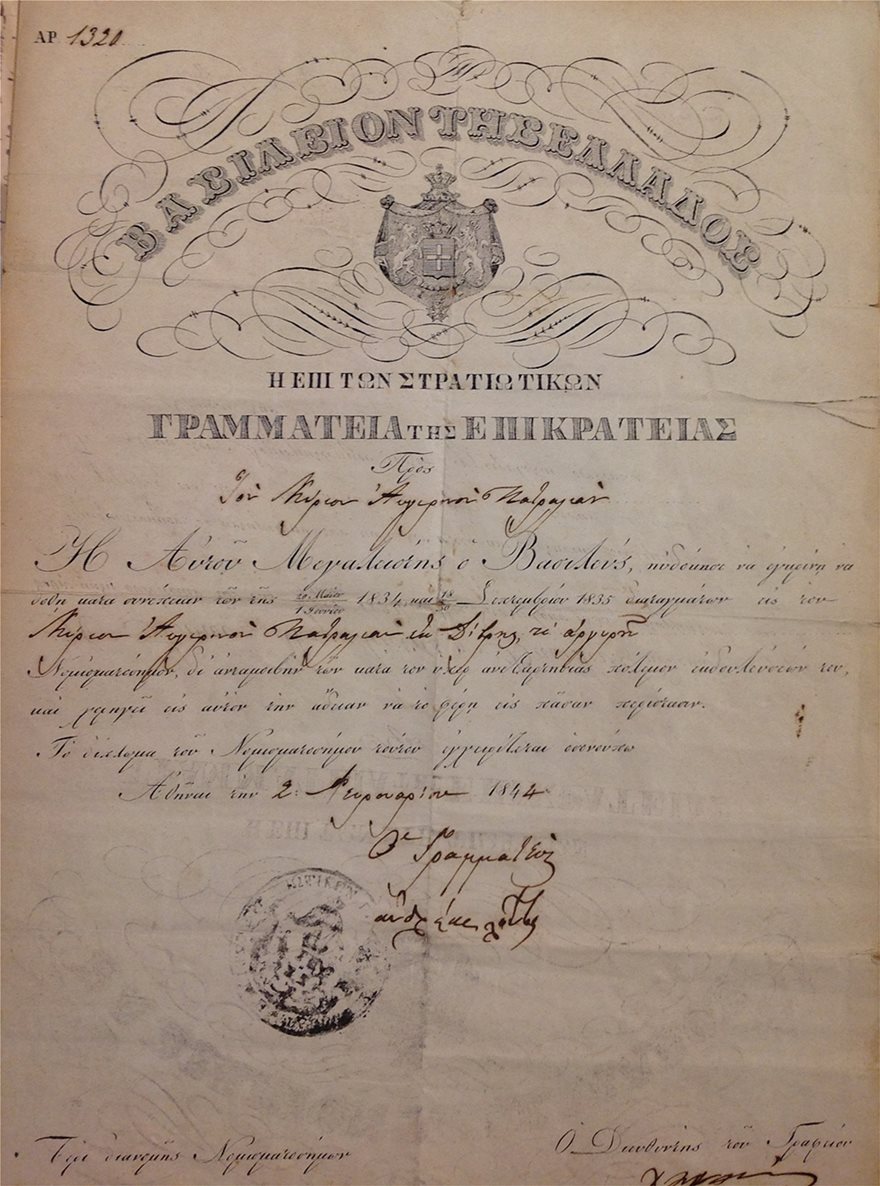 ΑΡ. 1320
ΒΑΣΙΛΕΙΟΝ ΤΗΣ ΕΛΛΑΔΟΣ
Η ΕΠΙ ΤΩΝ ΣΤΡΑΤΙΩΤΙΚΩΝ
ΓΡΑΜΜΑΤΕΙΑ ΤΗΣ ΕΠΙΚΡΑΤΕΙΑΣ
Πρὸς
Τὸν Κύριον Αὐγερινὸν
Ἡ Αὐτοῦ Μεγαλειότης ὁ Βασιλεύς, ηὐδόκησε νὰ ἐγκρίνῃ νὰ
δοθῇ κατὰ συνέχειαν τῶν τῆς 20 Μαΐου / 1 Ἰουνίου 1834 καὶ 18/30 Σεπτεμβρίου 1835 διαταγμάτων εἰς τὸν
Κύριον Αὐγερινὸν ἐκ τὸ ἀργυρῆ
Νομισματόσημον, δι' ἀνταμοιβὴν τῶν κατὰ τὸν ὑπὲρ ἀνεξαρτησίας πόλεμον ἐκδουλεύσεών του,
καὶ χορηγεῖ εἰς αὐτὸν τὴν ἄδειαν νὰ τὸ φέρῃ εἰς πᾶσαν περίστασιν.
Τὸ δίπλωμα τοῦ Νομισματοσήμου τούτου ἐγχειρίζεται
Ἀθῆναι τὴν 2 Φεβρουαρίου 1844
Ὁ Γραμματεὺς
ανδρέας λόντος
Περὶ διανομῆς Νομισματοσήμων
Ὁ Διευθυντὴς τοῦ Γραφείου